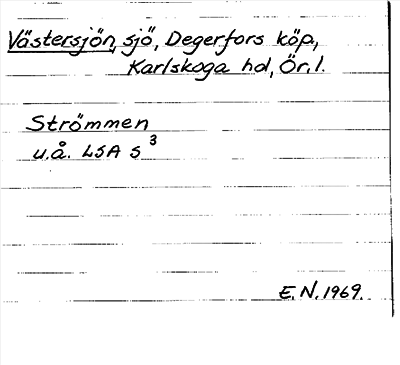 Västersjön, sjö, Degerfors köp.,
Karlskoga hd, Ör. l.
Strömmen
u.å. LSA S 3
E. N. 1969.